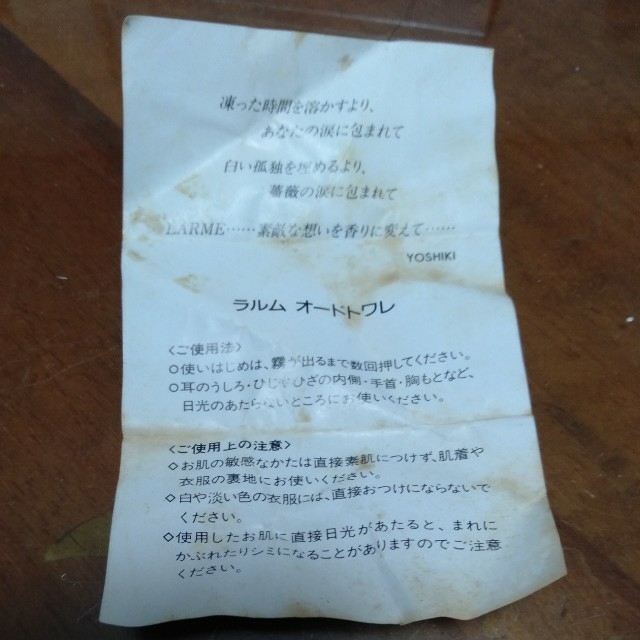 凍った時間を溶かすより、
あなたの涙に包まれて
白い孤独を埋めるより、
薔薇の涙に包まれて
LARME……素敵な想いを香りに変えて……
YOSHIKI
ラルム オードトワレ
〈ご使用法〉
○使いはじめは、霧が出るまで数回押してください。
○耳のうしろ・ひじやひざの内側・手首・胸もとなど、
日光のあたらないところにお使いください。
〈ご使用上の注意〉
◇お肌の敏感なかたは直接素肌につけず、肌着や
衣服の裏地にお使いください。
◇白や淡い色の衣服には、直接おつけにならないで
ください。
◇使用したお肌に直接日光があたると、まれに
かぶれたりシミになることがありますのでご注意
ください。